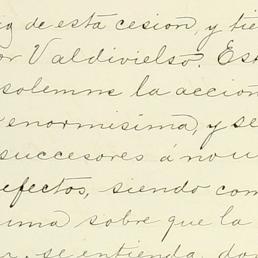 de esta cesion, y tie
or Valdivielso. Est
solemne la accion
enormisima, y se
succesores á no u
efectos, siendo com
uma sobre que la
se entienda, do